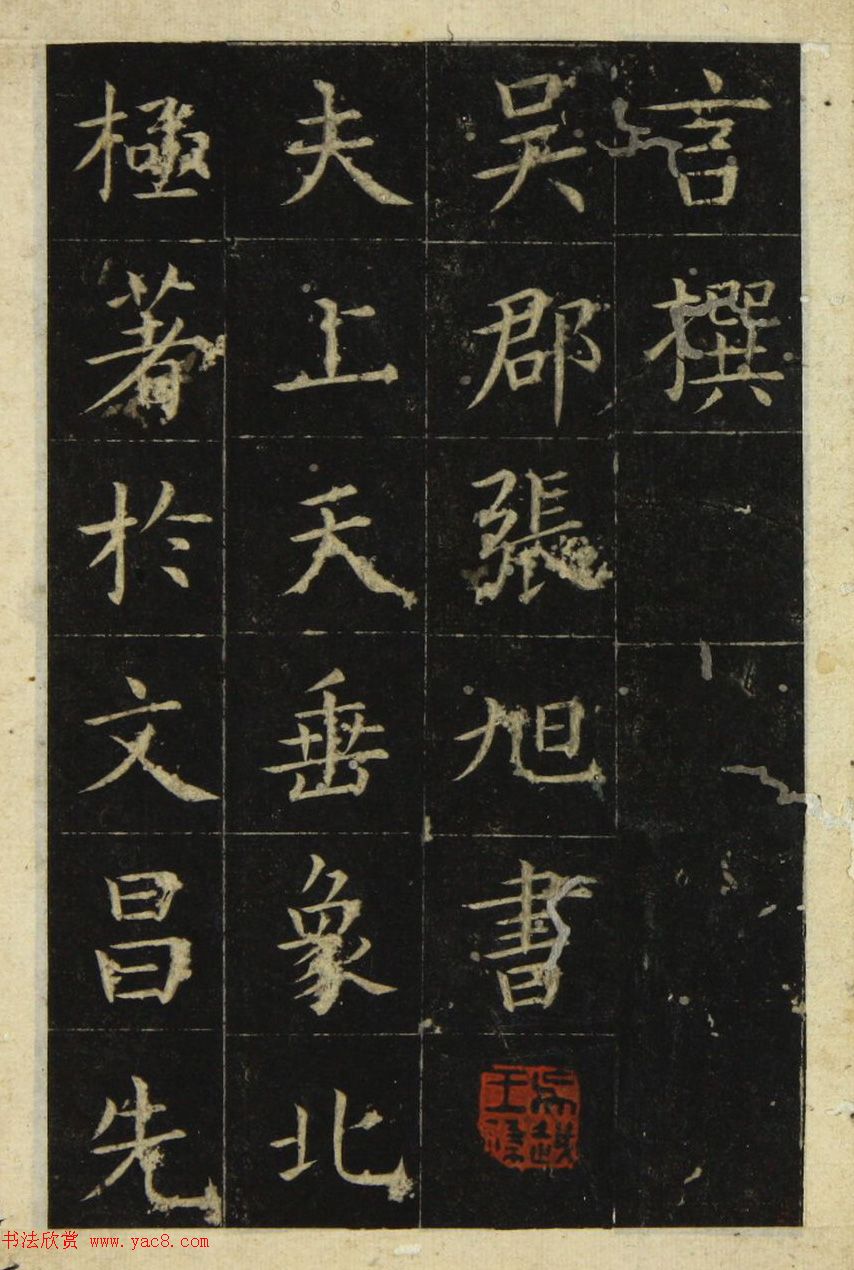 言撰
吴郡張旭書
夫上天垂象北
極著於文昌先
书法欣赏 www.yac8.com